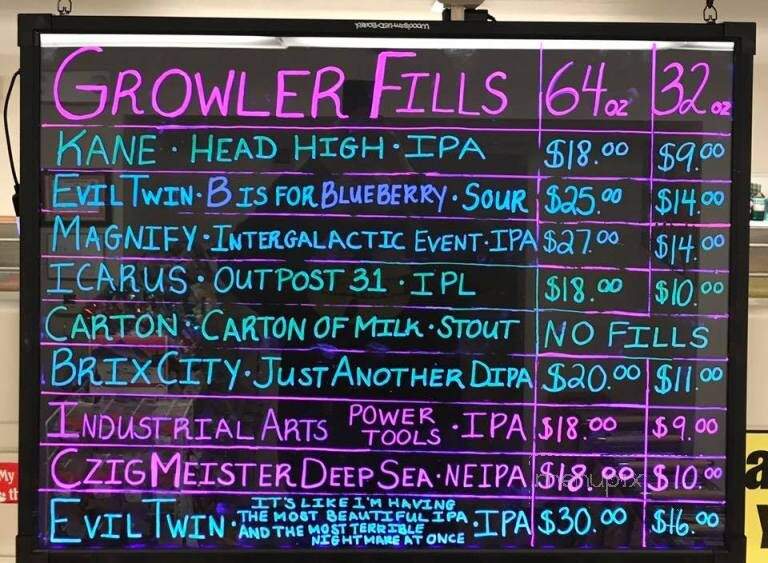 GROWLER FILLS 64oz 32oz
KANE · HEAD HIGH · IPA $18.00 $9.00
EVIL TWIN · B IS FOR BLUEBERRY · SOUR $25.00 $14.00
MAGNIFY · INTERGALACTIC EVENT · IPA $27.00 $14.00
ICARUS · OUTPOST 31 · IPL $18.00 $10.00
CARTON · CARTON OF MILK · STOUT NO FILLS
BRIX CITY · JUST ANOTHER DIPA $20.00 $11.00
INDUSTRIAL ARTS POWER TOOLS · IPA $18.00 $9.00
CZIGMEISTER DEEP SEA · NEIPA $18.00 $10.00
EVIL TWIN · IT'S LIKE I'M HAVING
THE MOST BEAUTIFUL IPA
AND THE MOST TERRIBLE
NIGHTMARE AT ONCE · IPA $30.00 $16.00
menupix
My